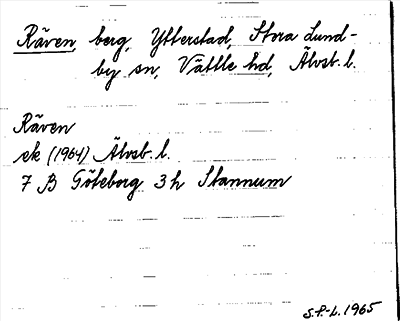 Räven, berg, Ytterstad, Stora Lund-
by sn, Vättle hd, Älvsb. l.
Räven
ek (1964) Älvsb. l.
7 B Göteborg 3 h Stannum
S.P-L. 1965